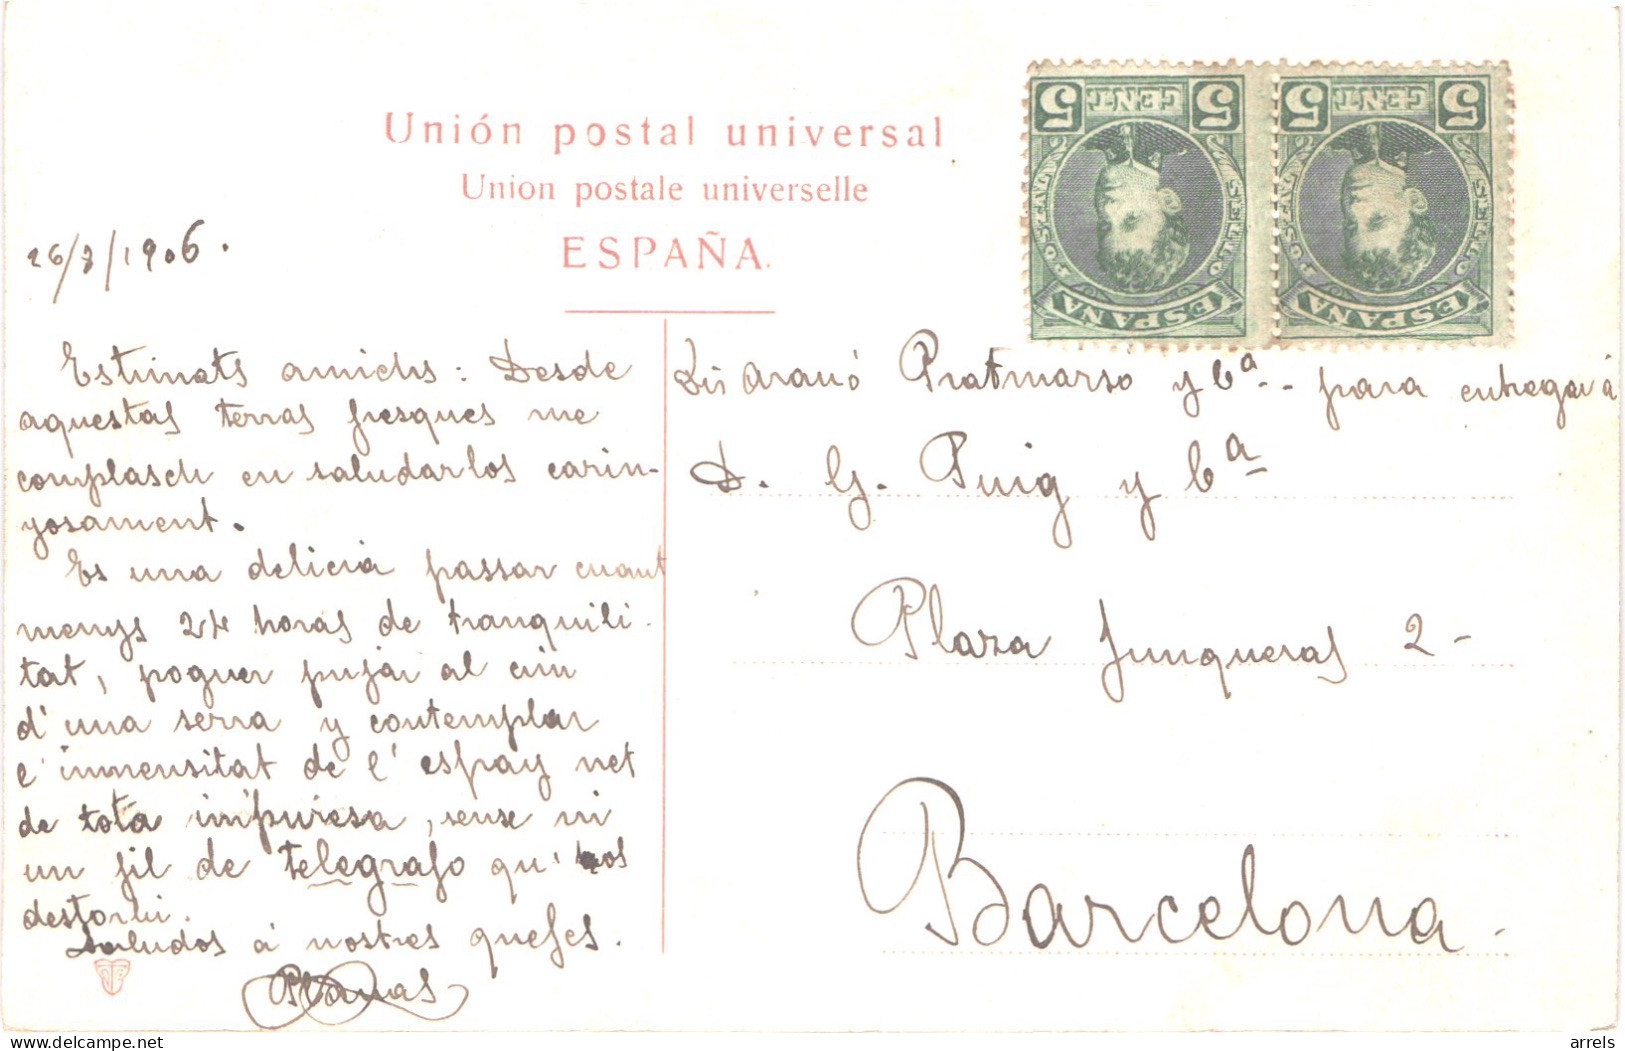 Unión postal universal
Union postale universelle
ESPAÑA.
5 CENT 5
POSTAL SELLO
ESPAÑA
5 CENT 5
POSTAL SELLO
ESPAÑA
26/8/1906.
Estimats amichs: Desde
aquestas terras fresques me
complasch en saludarlos carin-
yosament.
Es una delicia passar cuant
menys 24 horas de tranquili-
tat, poguer pujar al cim
d'una serra y contemplar
l'inmensitat de l'espay net
de tota impuresa, sense ni
un fil de telegrafo qu'nos
destorbi.
Saludos á nostres quefes.
Planas
Pratmarsó y Cª - para entregar á
D. G. Puig y Cª
Plaza Junqueras 2-
Barcelona.
arrels